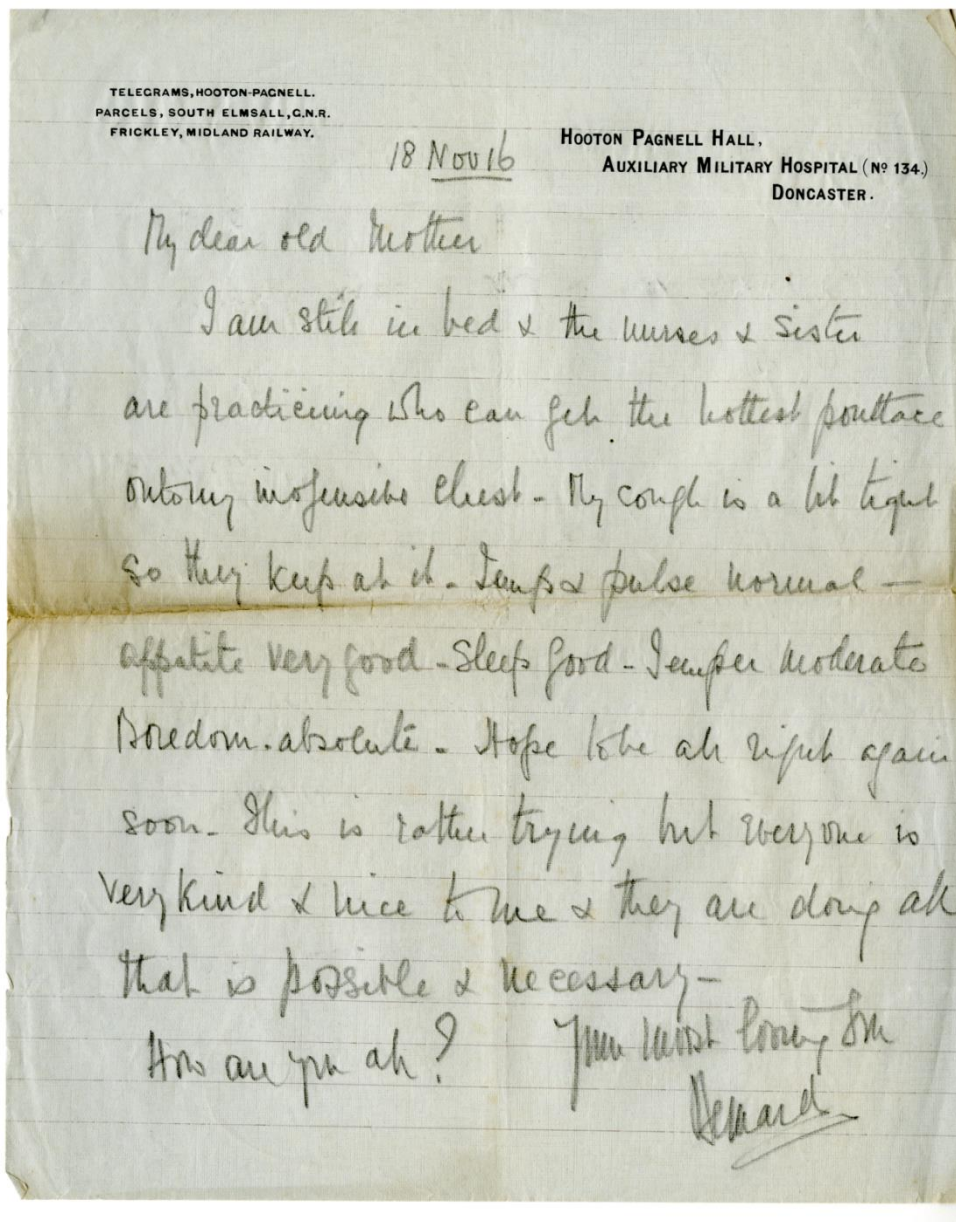 TELEGRAMS, HOOTON-PAGNELL.
PARCELS, SOUTH ELMSALL, G.N.R.
FRICKLEY, MIDLAND RAILWAY.
HOOTON PAGNELL HALL,
AUXILIARY MILITARY HOSPITAL (Nº 134.)
DONCASTER.
18 Nov 16
My dear old Mother
I am still in bed & the nurses & Sister
are practicing who can get the hottest poultace
onto my inofensive chest - My cough is a bit tight
so they keep at it - Temp & pulse normal -
appatite very good - Sleep good - Temper moderate
Boredom - absolute - Hope to be all right again
soon - This is rather trying but everyone is
very kind & nice to me & they are doing all
that is possible & necessary -
How are you all? Your most loving Son